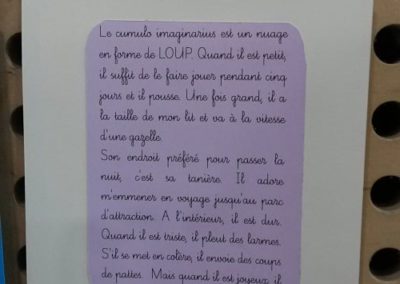 Le cumulo imaginarius est un nuage
en forme de LOUP. Quand il est petit,
il suffit de le faire jouer pendant cinq
jours et il pousse. Une fois grand, il a
la taille de mon lit et va à la vitesse
d'une gazelle.
Son endroit préféré pour passer la
nuit, c'est sa tanière. Il adore
m'emmener en voyage jusqu'au parc
d'attraction. A l'intérieur, il est dur.
Quand il est triste, il pleut des larmes.
S'il se met en colère, il envoie des coups
de pattes. Mais quand il est joyeux, il